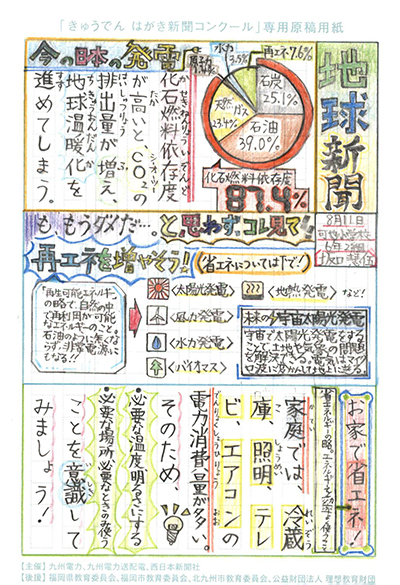 「きゅうでん はがき新聞コンクール」専用原稿用紙
地球新聞
8月11日
今の日本の発電
水力
3.5%
再エネ7.6%
石炭
25.1%
天然ガス
23.4%
石油
39.0%
化石燃料依存度
87.4%
化石燃料依存度
が高いと、CO2の
排出量が増え、
地球温暖化を
進めてしまう。
も、もうダメだ…と思わず、コレ見て!!
再エネを増やそう!
(省エネについては下で!)
「再生可能エネルギー」
の略で、自然の中
で再利用が可能
なエネルギーのこと。
石油のように無くな
らず、非常電源に
もなる!!
〈太陽光発電〉
〈地熱発電〉
など!
〈風力発電〉
〈水力発電〉
〈バイオマス〉
未来の宇宙太陽光発電
お家で省エネ!
家庭では、冷蔵
庫、照明、テレ
ビ、エアコンの
電力消費量が多い。
そのため、
必要な温度、明るさにする
必要な場所、必要なときのみ使う
ことを意識して
みましょう!
【主催】九州電力、九州電力送配電、西日本新聞社
【後援】福岡県教育委員会、福岡市教育委員会、北九州市教育委員会、公益財団法人 理想教育財団